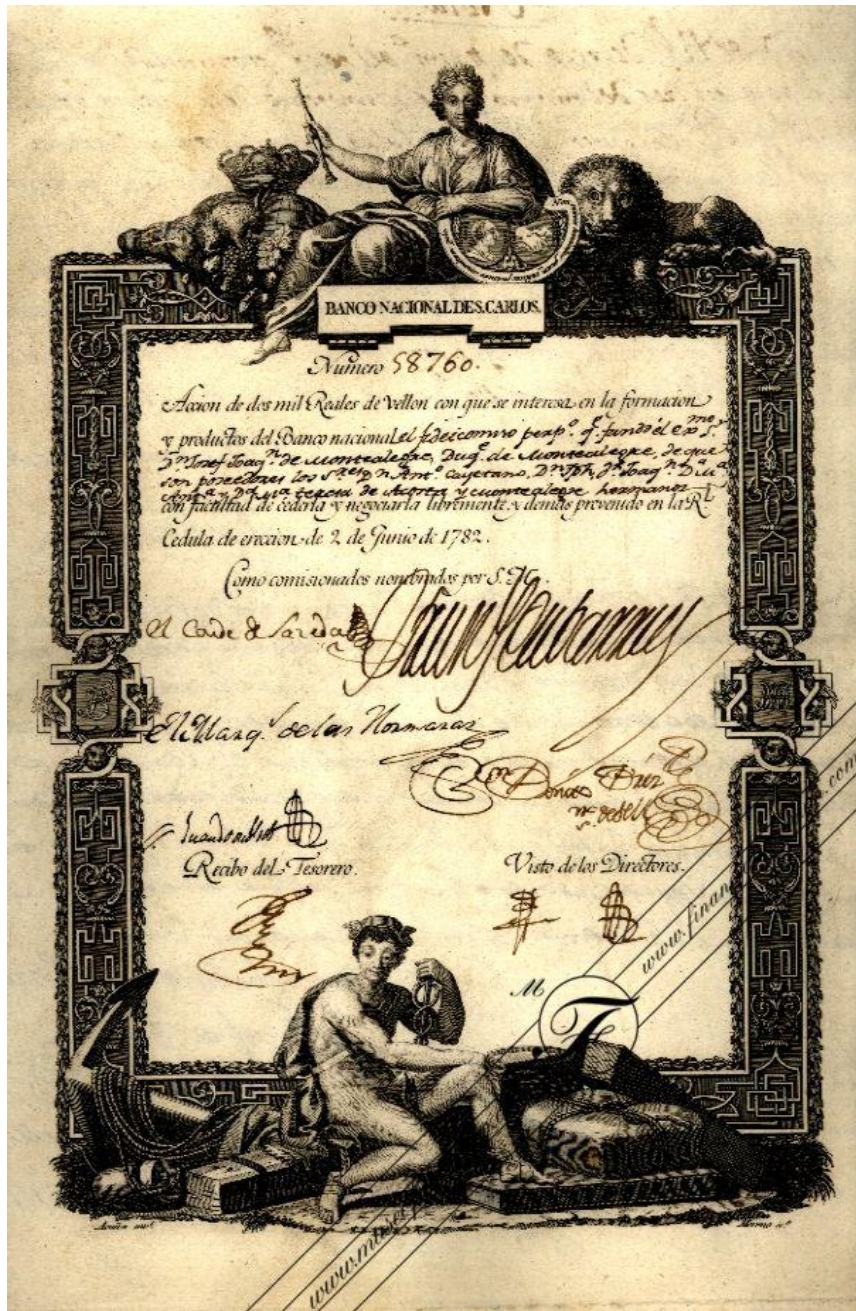 BANCO NACIONAL DE S. CARLOS.
Numero 58760.
Accion de dos mil Reales de Vellon con que se interesa en la formacion
y productos del Banco nacional el fideicomiso perp.º q.e fundó el ex.mo S.r
D.n Josef Joaq.n de Montealegre, Duq.e de Montealegre, de que
son poseedores los S.res D.n Ant.º Cayetano, D.n Jph, D.n Joaq.n D.a M.a
Ant.a y D.a M.a teresa de y Montealegre hermanos
con facultad de cederla y negociarla libremente y demás prevenido en la R.l
Cedula de ereccion de 2 de Junio de 1782.
Como comisionados nombrados por S. M.
El Conde de
El Marq.s de las Hormazas
Recibo del Tesorero.
Visto de los Directores.
M